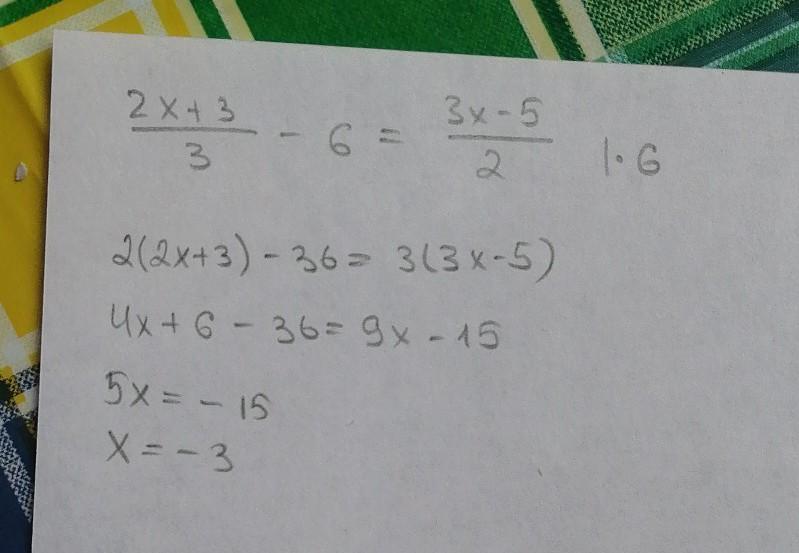 (2x+3)/3 - 6 = (3x-5)/2 |·6
2(2x+3) - 36 = 3(3x-5)
4x + 6 - 36 = 9x - 15
5x = -15
x = -3